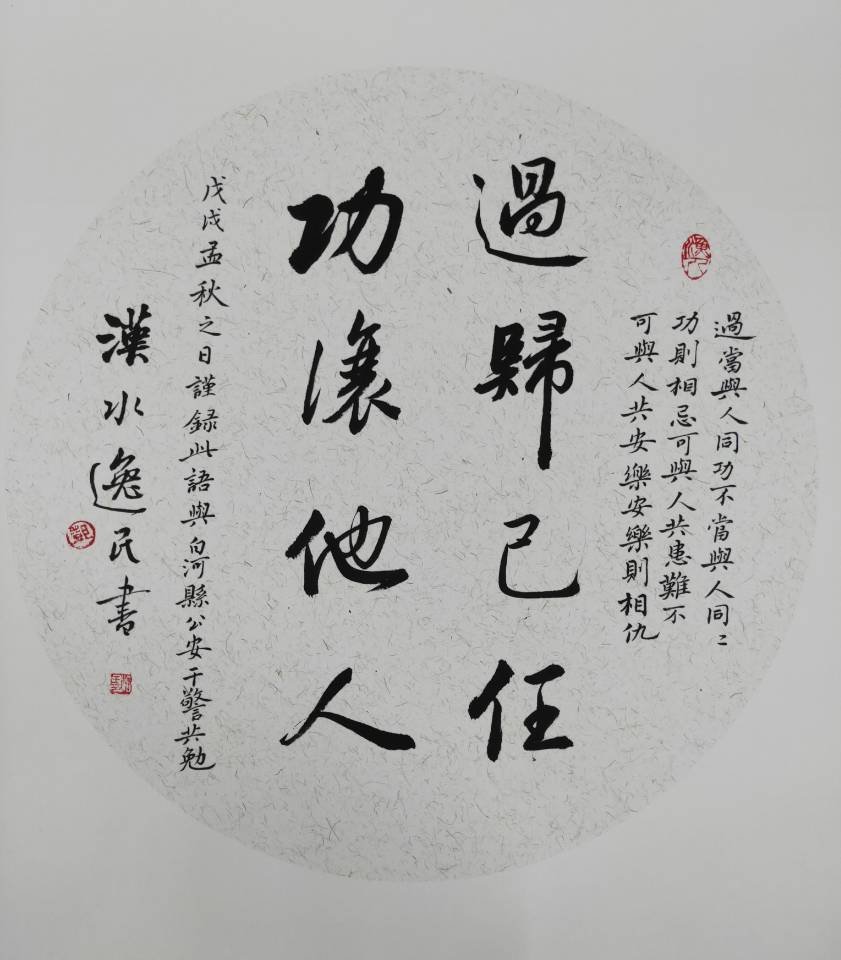 過當與人同功不當與人同〻
功則相忌可與人共患難不
可與人共安樂安樂則相仇
過歸己任
功讓他人
戊戌孟秋之日謹録此語與白河縣公安干警共勉
漢水逸民書